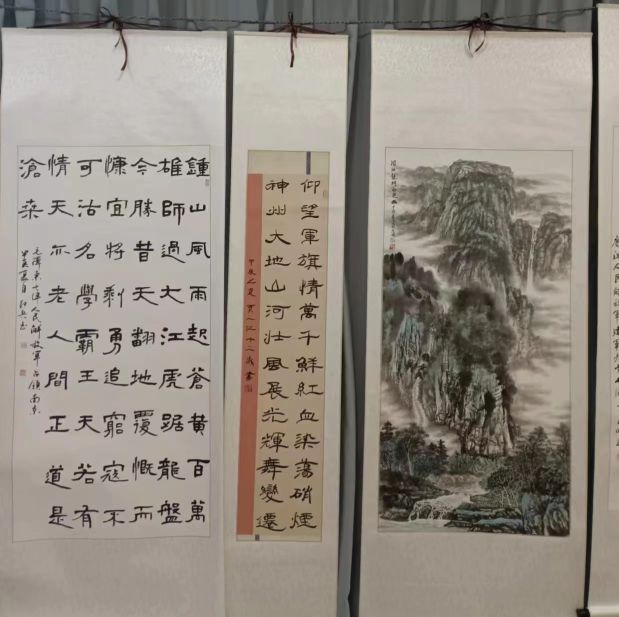 鍾山風雨起蒼黃百萬
雄師過大江虎踞龍盤
今勝昔天翻地覆慨而
慷宜將剩勇追窮寇不
可沽名學霸王天若有
情天亦老人間正道是
滄桑
毛澤東七律人民解放軍占領南京
甲辰夏月
仰望軍旗情萬千鮮紅血染蕩硝煙
神州大地山河壯風展光輝舞變遷
甲辰之夏